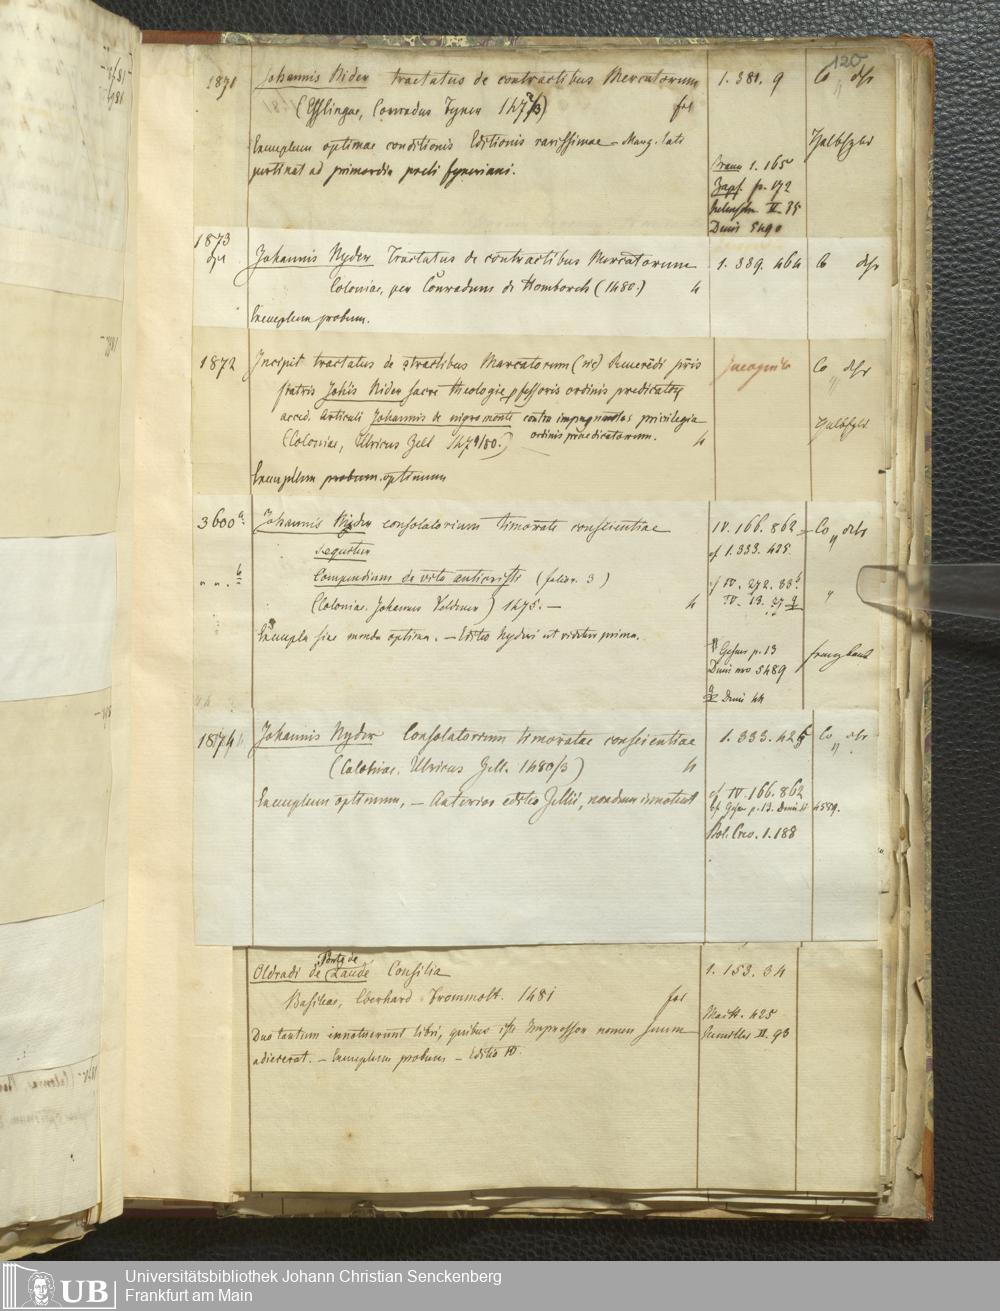 120
1871 Johannis Nider tractatus de contractibus Mercatorum 1. 381. 9 Co
(Esslingae, Conradus Fyner 147 ) fol
Exemplum optimae conditionis Editionis rarissimae
pertinet ad primordia preli fyneriani.
Braun 1. 165
Zapf. p. 172
II 75
Denis 5490
Halbfzbd
1873
Johannis Nyder Tractatus de contractibus Mercatorum 1. 389. 464 Co
Coloniae, per Conradum de Homborch (1480.) 4
Exemplum probum.
1872 Incipit tractatus de 9tractibus Mercatorum (sic) Incognita Co
fratris Johis Nider sacre theologie pfessoris ordinis predicatoꝝ
acced. Articuli Johannis de nigro monte contra impugnantes privilegia
(Coloniae, Ulricus Zell 147 /80.) ordinis praedicatorum. 4
Halbfzbd
Exemplum probum. optimum
3600 a. Johannis Nyder consolatorium timorate conscientiae IV. 166. 862 Co
sequitur cf 1. 333. 425.
" " b Compendium de vita antichristi (folior. 3) cf IV. 272. 83
(Coloniae. Johannes Veldener) 1475. — 4 IV. 13. 27
Exempla sine menda optima. — Editio Nyderi ut videtur prima.
Gesner p. 13
Denis nro 5489
Franzband
Denis 44
1874 Johannis Nyder Consolatorium timoratae conscientiae 1. 333. 425 Co
(Coloniae. Ulricus Zell. 1480/3) 4
Exemplum optimum, — Anterior editio Zellii, nondum innotuit
cf IV. 166. 862
cf. Gesn p. 13. Denis 4589.
1. 188
Oldradi de Ponte de Laude Consilia 1. 153. 34
Basileae, Eberhard Frommolt. 1481 fol
Duo tantum innotuerunt libri, quibus iste Impressor nomen suum
adiecerat. — Exemplum probum — Editio IV.
Maitt. 425
II. 93
Universitätsbibliothek Johann Christian Senckenberg
Frankfurt am Main
UB